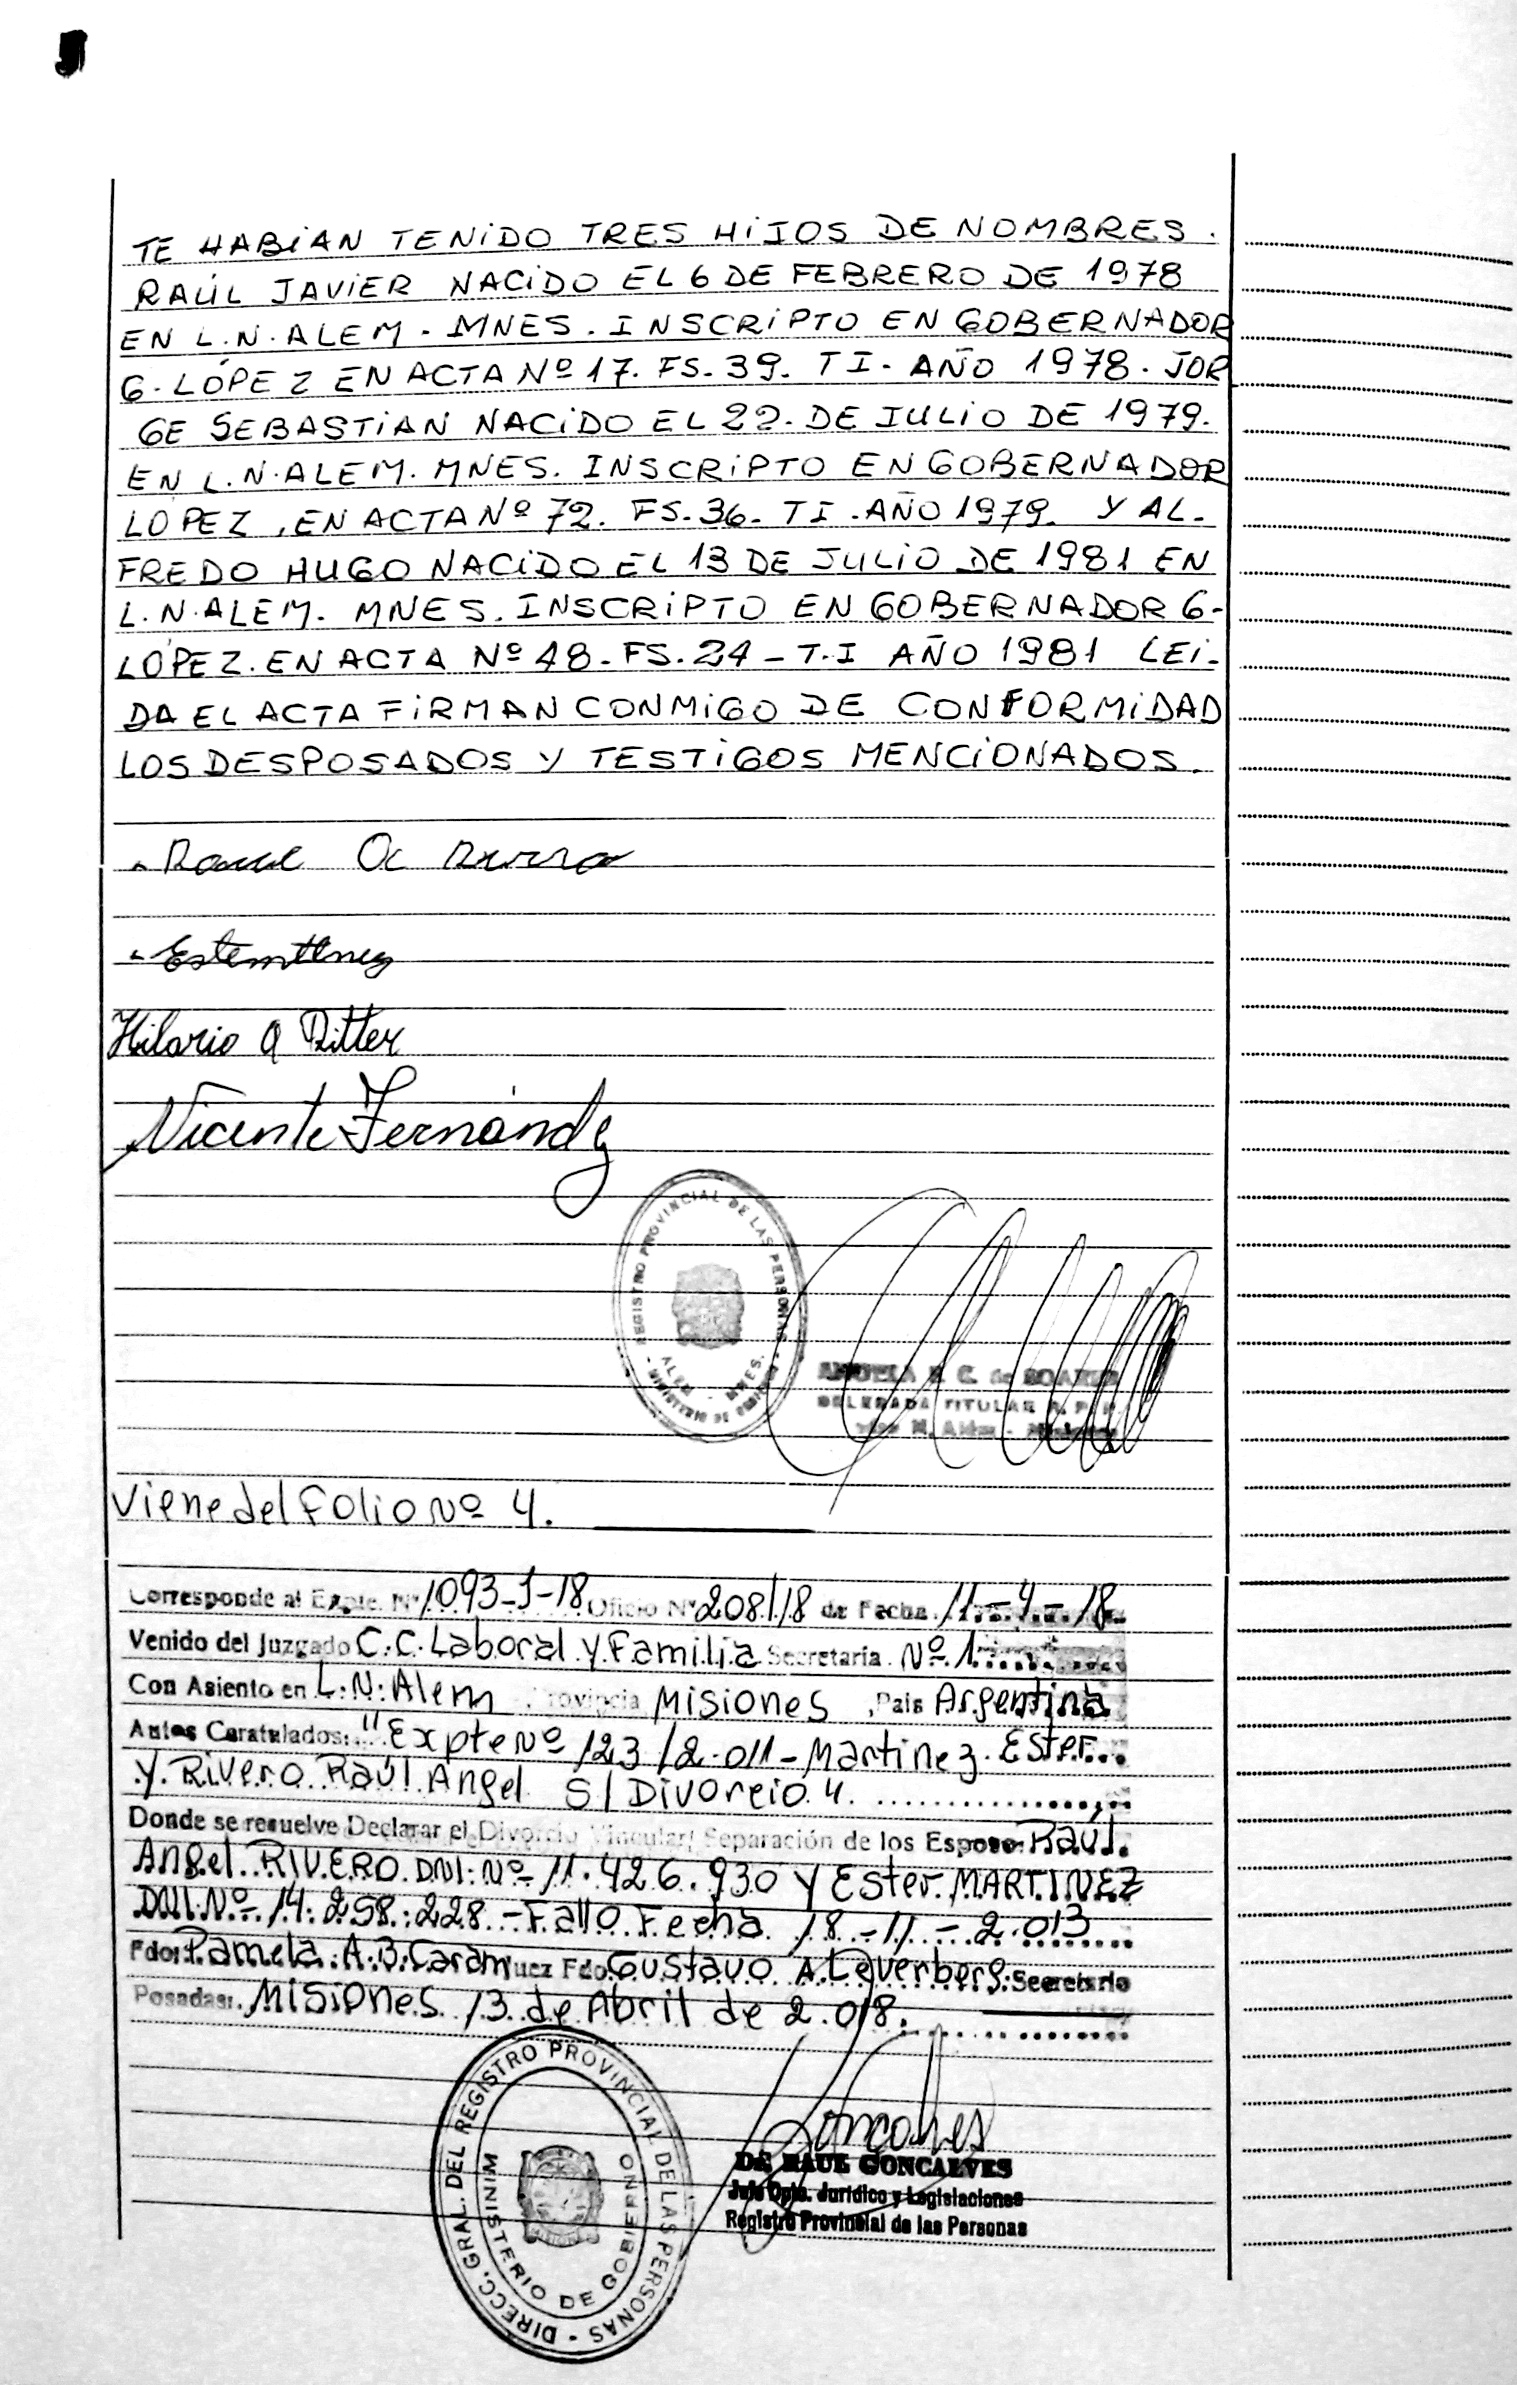 TE HABIAN TENIDO TRES HIJOS DE NOMBRES.
RAÚL JAVIER NACIDO EL 6 DE FEBRERO DE 1978
EN L.N.ALEM-MNES. INSCRIPTO EN GOBERNADOR
G.LÓPEZ EN ACTA Nº 17. FS-39. TI-AÑO 1978. JOR
GE SEBASTIAN NACIDO EL 22.DE JULIO DE 1979.
EN L.N.ALEM.MNES. INSCRIPTO EN GOBERNADOR
LOPEZ, EN ACTA Nº 72. FS-36- TI-AÑO 1979. Y AL-
FREDO HUGO NACIDO EL 13 DE JULIO DE 1981 EN
L.N.ALEM. MNES.INSCRIPTO EN GOBERNADOR G-
LÓPEZ.EN ACTA Nº 48-FS.24-T.I AÑO 1981 LEI-
DA EL ACTA FIRMAN CONMIGO DE CONFORMIDAD
LOS DESPOSADOS Y TESTIGOS MENCIONADOS.
Hilario A Ritter
Vicente Fernández
REGISTRO PROVINCIAL DE LAS PERSONAS
ALEM - MNES.
MINISTERIO DE GOBIERNO
DELEGADA TITULAR R. P. P.
Viene del Folio Nº 4.
Corresponde al Expte. Nº 1093-J-18 Oficio Nº 208/18 de Fecha 11-4-18
Venido del Juzgado C.C.Laboral y Familia Secretaría Nº 1
Con Asiento en L.N.Alem Provincia Misiones, Pais Argentina
Autos Caratulados: "Expte Nº 123/2.011-Martinez Ester
y Rivero Raúl Angel S/Divorcio".
Donde se resuelve Declarar el Divorcio Vincular/Separación de los Esposo: Raúl
Angel RIVERO DNI:Nº 11.426.930 y Ester MARTINEZ
DNI.Nº 14.258.228-Fallo Fecha 18-11-2.013
Fdo: Pamela A.B. Juez Fdo. Gustavo A.Leverberg: Secretario
Posadas: Misiones 13 de Abril de 2.018.
DIRECC. GRAL. DEL REGISTRO PROVINCIAL DE LAS PERSONAS
MINISTERIO DE GOBIERNO
Goncalves
RAUL GONCALVES
Jefe Dpto. Jurídico y Legislaciones
Registro Provincial de las Personas